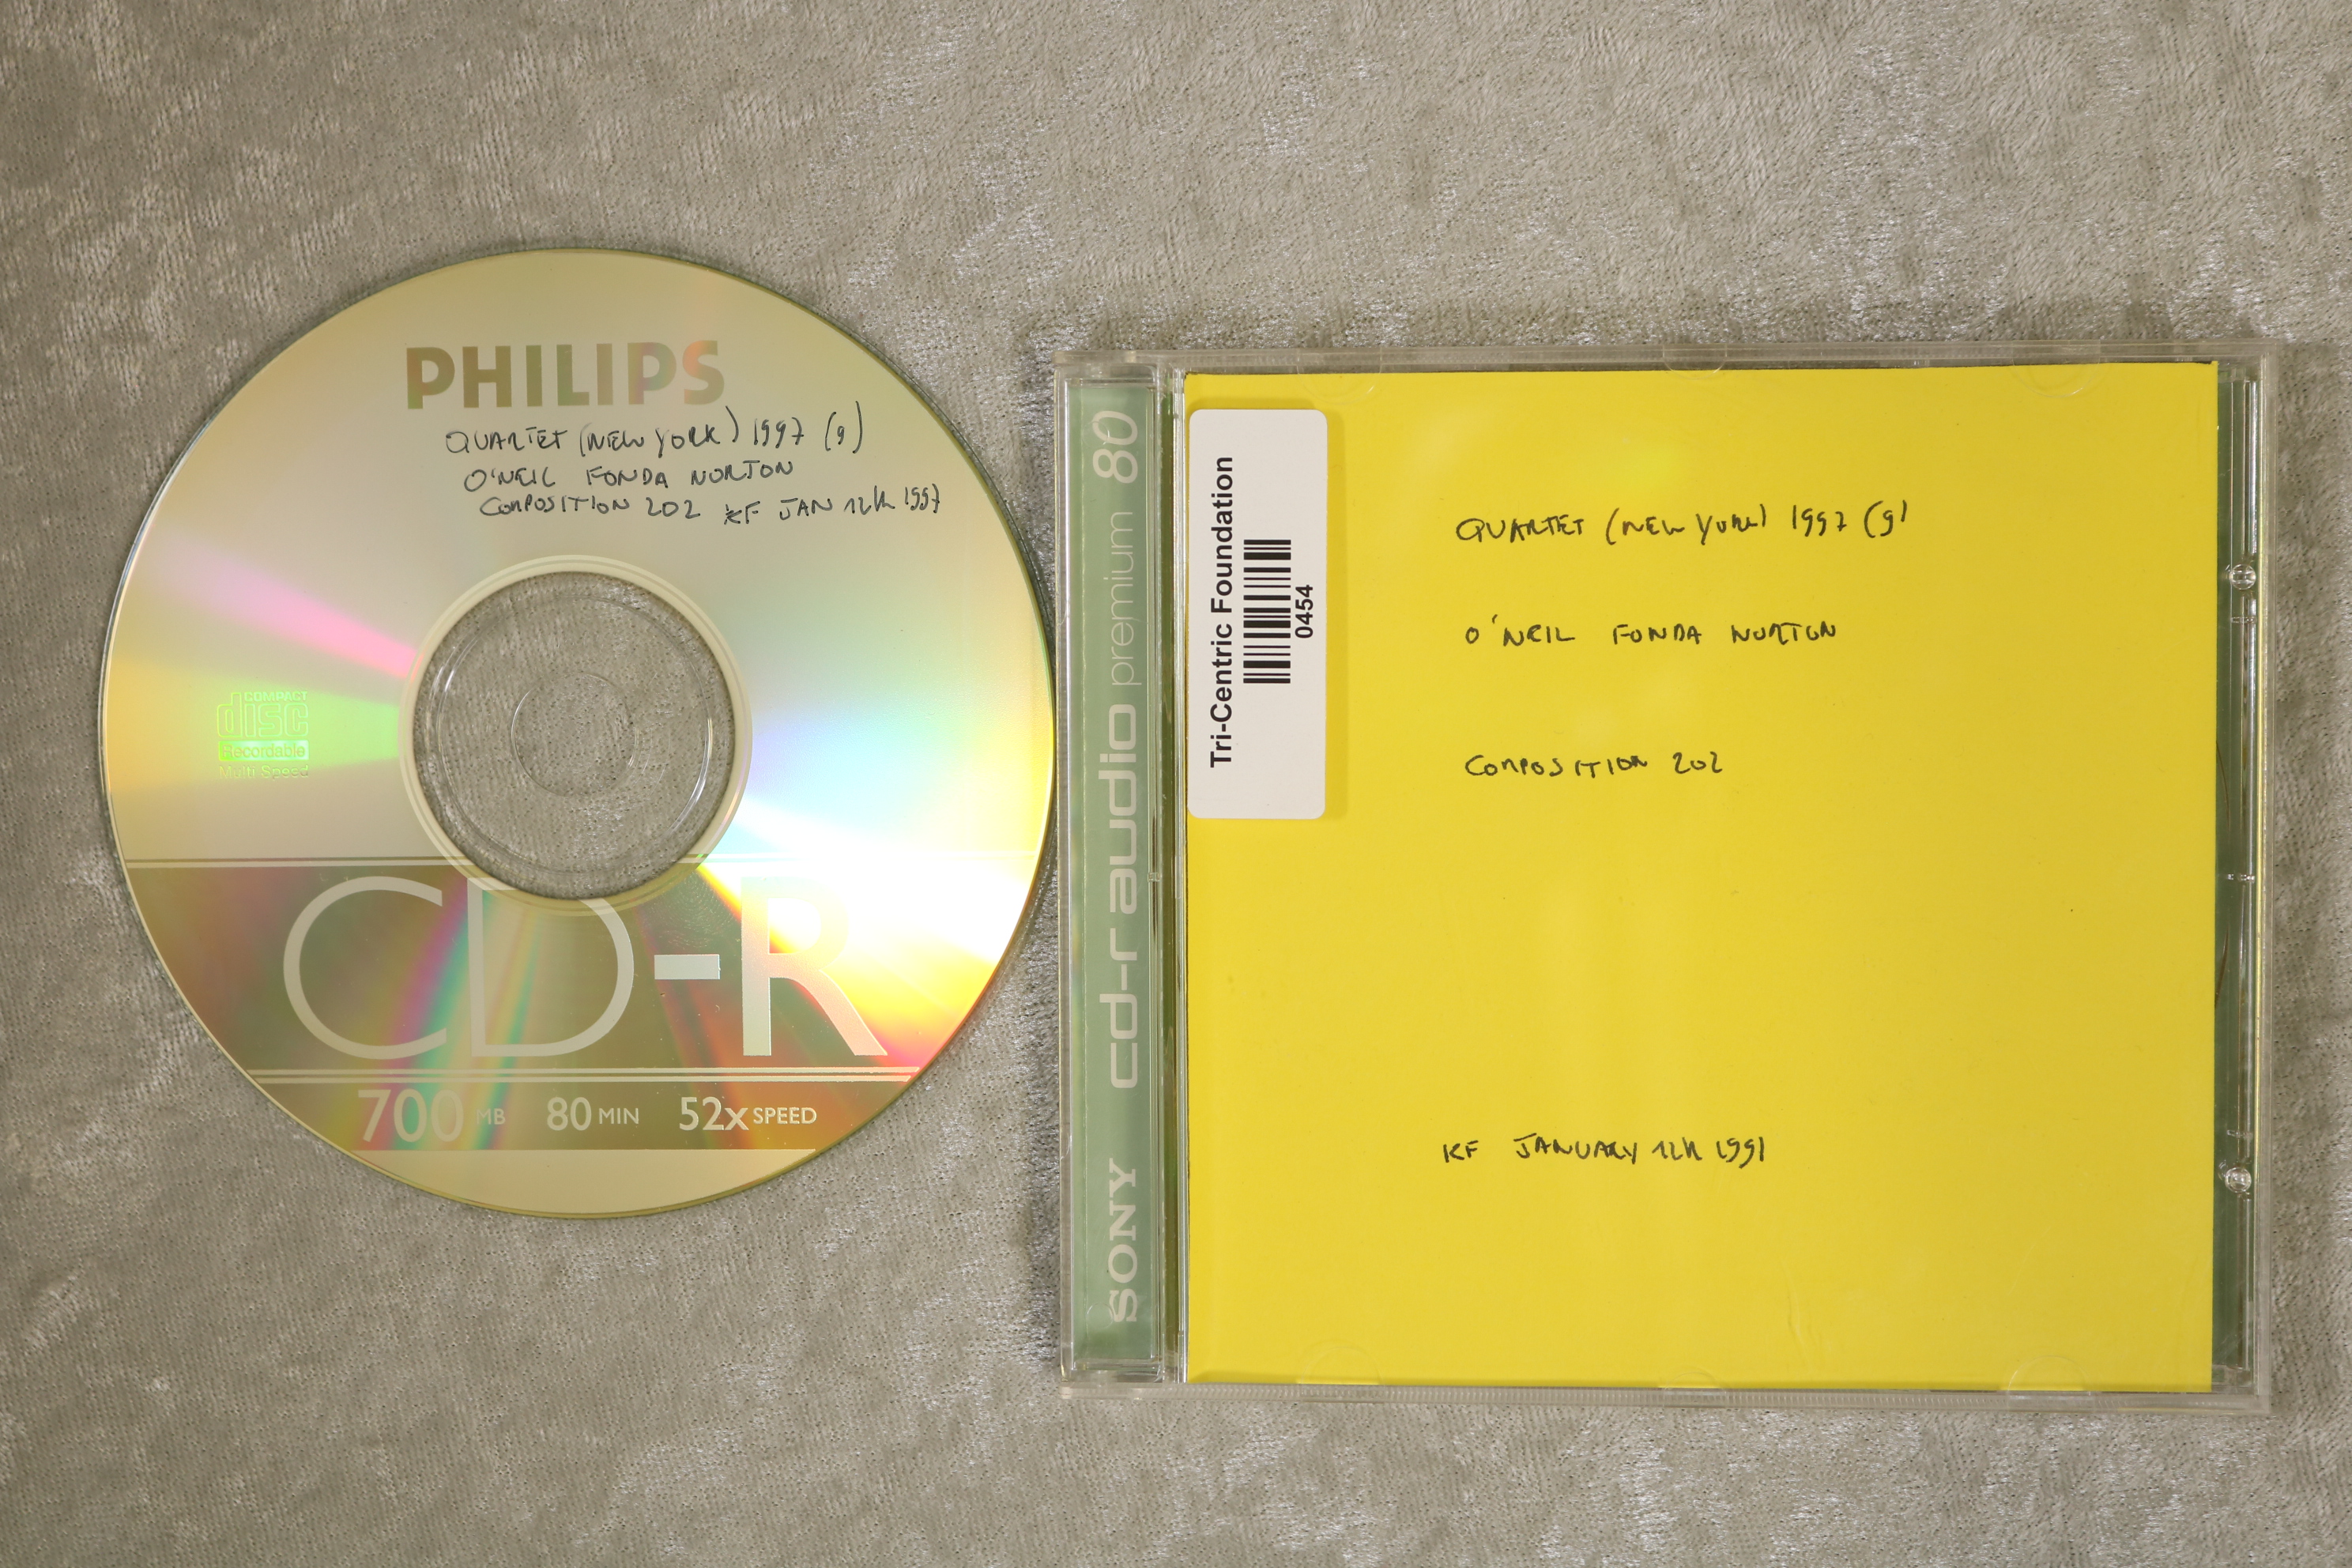 PHILIPS
QUARTET (NEW YORK) 1997 (9)
O'NEIL FONDA NORTON
COMPOSITION 202 KF JAN 12th 1997
COMPACT
disc
Recordable
Multi Speed
CD-R
700 MB 80 MIN 52x SPEED
SONY cd-r audio premium 80
Tri-Centric Foundation
0454
QUARTET (NEW YORK) 1997 (9)
O'NEIL FONDA NORTON
COMPOSITION 202
KF JANUARY 12th 1991